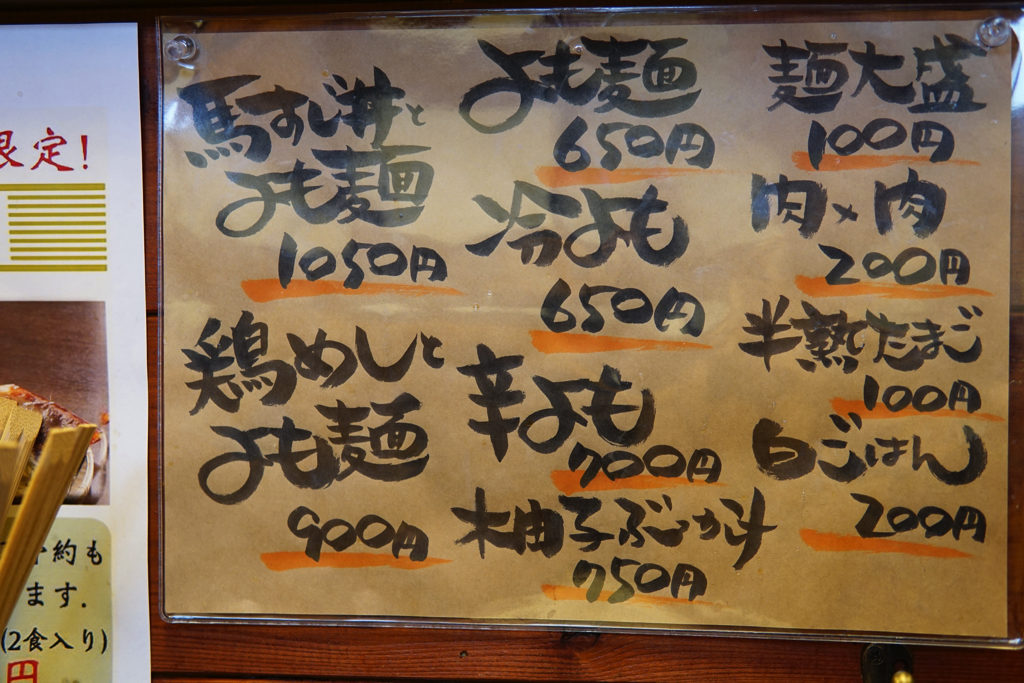 馬すじ丼と
よも麺
1050円
鶏めしと
よも麺
900円
よも麺
650円
冷よも
650円
辛よも
700円
柚子ぶっかけ
750円
麺大盛
100円
肉×肉
200円
半熟たまご
100円
白ごはん
200円
限定!
約も
ます.
(2食入り)
円